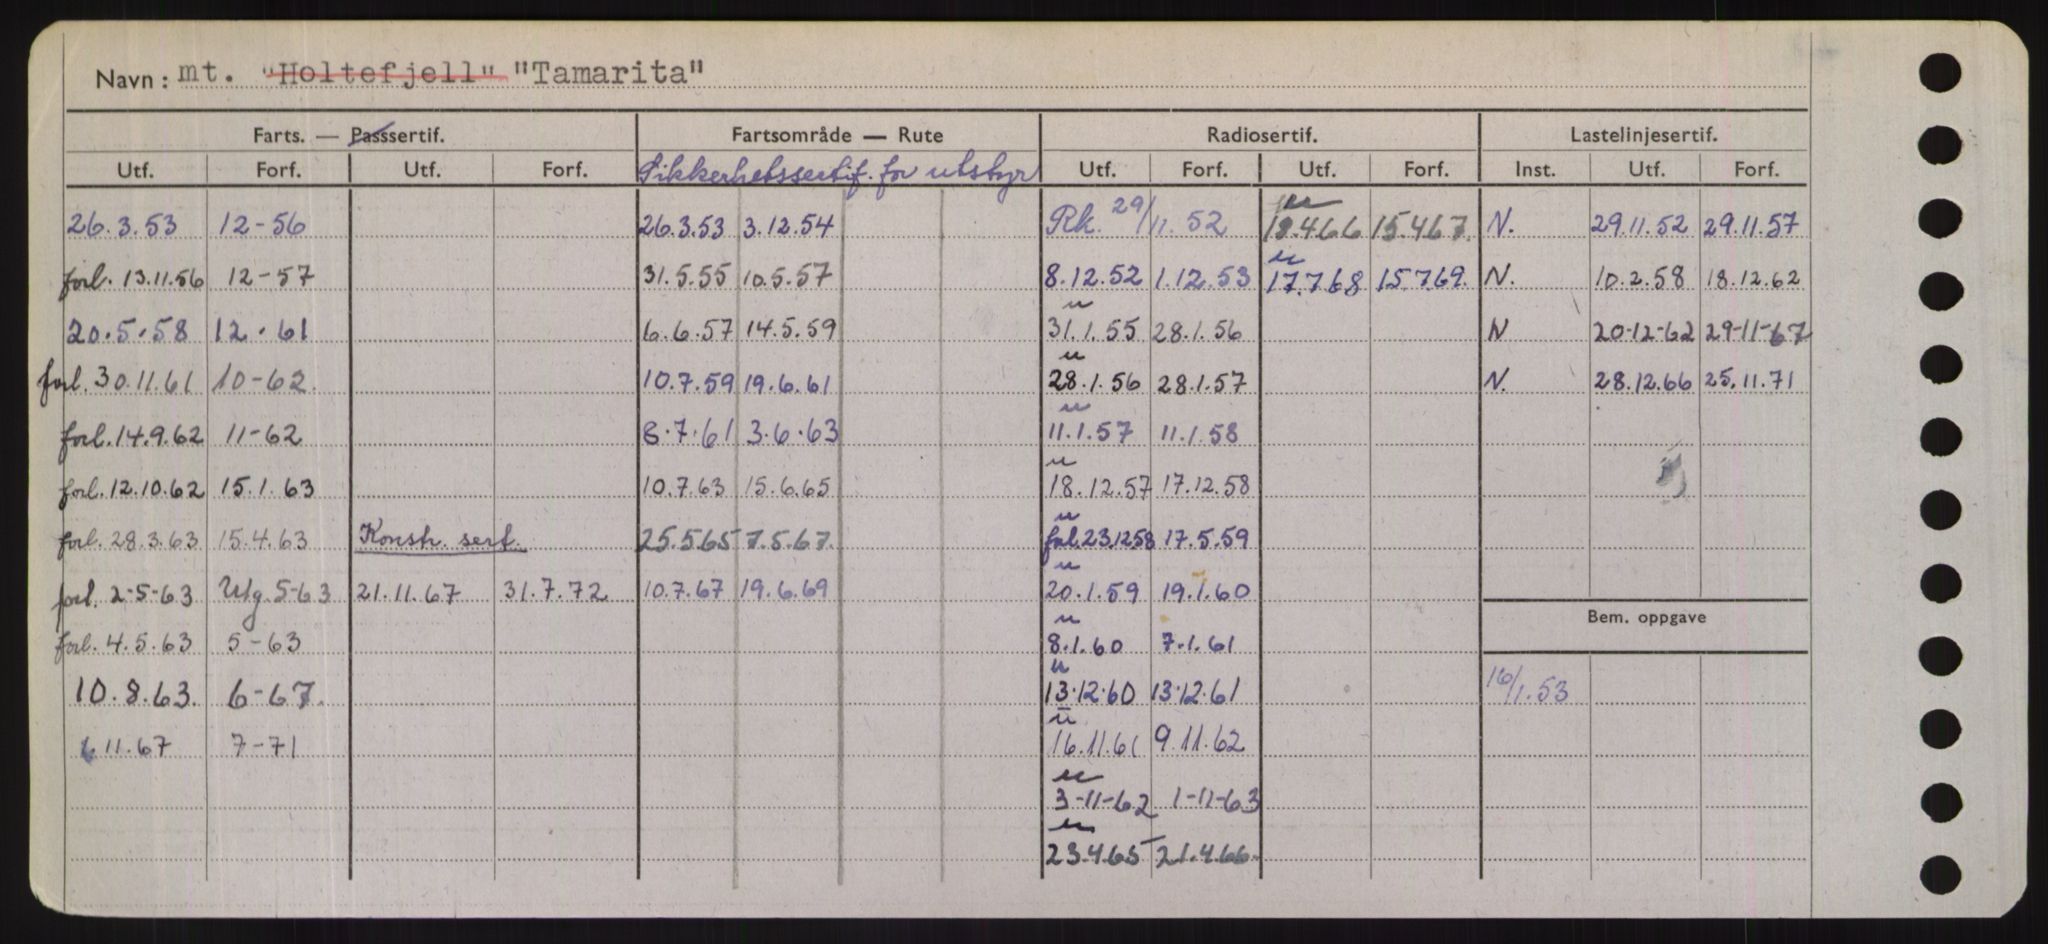 Navn: mt. "Holtefjell" "Tamarita"
Farts. — Passsertif. Fartsområde — Rute Radiosertif. Lastelinjesertif.
Utf. Forf. Utf. Forf. Sikkerhetssertif. for utstyr Utf. Forf. Utf. Forf. Inst. Utf. Forf.
26.3.53 12-56 26.3.53 3.12.54 Rk. 29/11.52 u 18.4.66 15.4.67. N. 29.11.52 29.11.57
forl. 13.11.56 12-57 31.5.55 10.5.57 8.12.52 1.12.53 u 17.7.68 15.7.69. N. 10.2.58 18.12.62
20.5.58 12.61 6.6.57 14.5.59 u 31.1.55 28.1.56 N 20-12-62 29-11-67
forl. 30.11.61 10-62. 10.7.59 19.6.61 u 28.1.56 28.1.57 N. 28.12.66 25.11.71
forl. 14.9.62 11-62 8.7.61 3.6.63 u 11.1.57 11.1.58
forl. 12.10.62 15.1.63 10.7.63 15.6.65 u 18.12.57 17.12.58
forl. 28.3.63 15.4.63 Konstr. sert. 25.5.65 7.5.67. u fol. 23.12.58 17.5.59
forl. 2-5-63 Utg 5-63 21.11.67 31.7.72 10.7.67 19.6.69 u 20.1.59 19.1.60
Bem. oppgave
forl. 4.5.63 5-63 u 8.1.60 7.1.61
10.8.63. 6-67. u 13.12.60 13.12.61 16/1.53
6 11.67 7-71 u 16.11.61 9.11.62
u 3-11-62 1-11-63
u 23.4.65 21.4.66.